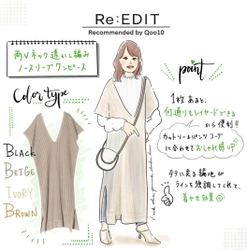 Re:EDIT
Recommended by Qoo10
両Vネック透かし編み
ノースリーブワンピース
Color type
BLACK
BEIGE
IVORY
BROWN
point
1枚あると、
何通りもレイヤードできる
から便利!!
カットソーもパンツコーデ
に合わせておしゃれ感UP
タテに見る編地が
ラインを強調してくれて、
着やせ効果◎